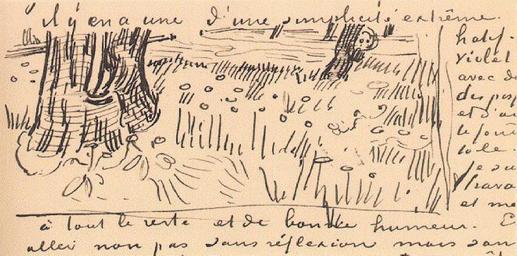 il y en a une d'une simplicité extrême.
violet
avec d
et d'au
toile.
Je su
Trava
et me
à tout le reste et de bonne humeur. E
aller non pas sans réflexion mais san